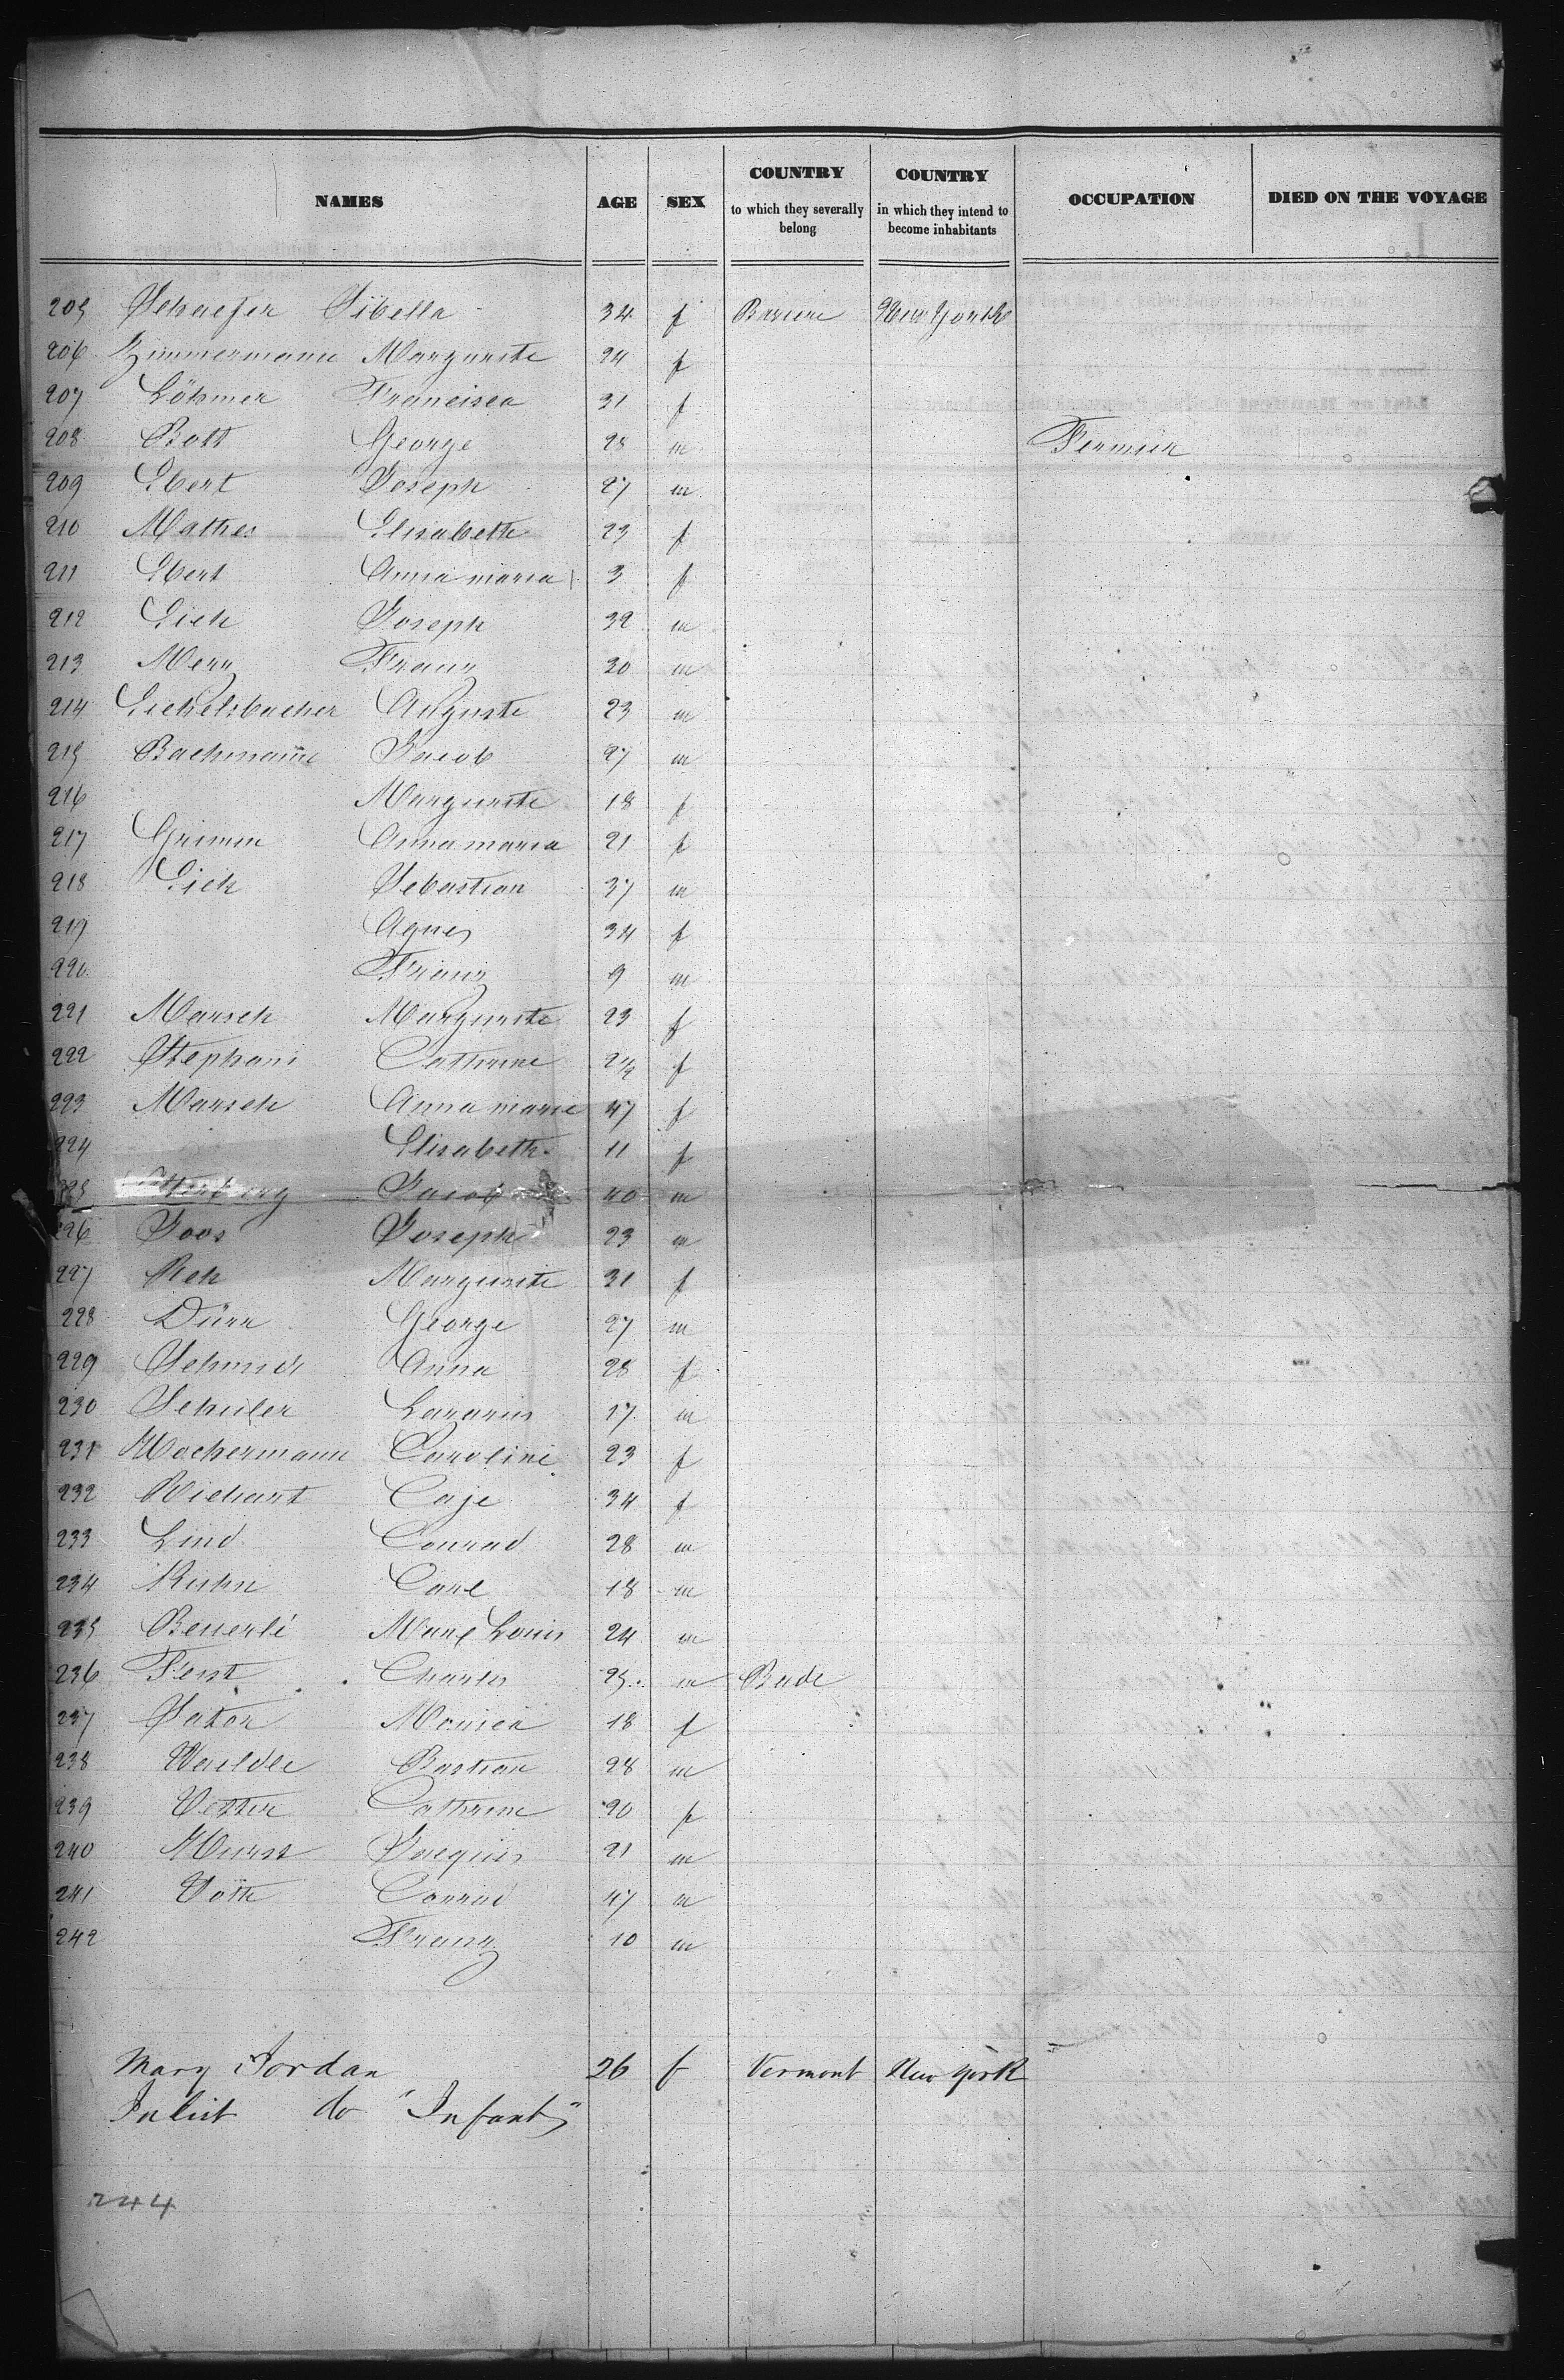 NAMES AGE SEX COUNTRY to which they severally belong COUNTRY in which they intend to become inhabitants OCCUPATION DIED ON THE VOYAGE
205 Schaefer Sibella 34 f New Yorck
206 Zimmermann Marguerite 24 f
207 Löhmer Francisca 31 f
208 Bott George 28 m Fermier
209 Ebert Joseph 27 m
210 Mathes Elisabeth 23 f
211 Ebert Anna maria 3 f
212 Eich Joseph 32 m
213 Merz Franz 20 m
214 Eichelsbacher Auguste 23 m
215 Bachmann Jacob 27 m
216 Marguerite 18 f
217 Grimm Anna maria 21 f
218 Eich Sebastian 37 m
219 Agnes 34 f
220 Franz 9 m
221 Marsch Marguerite 23 f
222 Stephani Cathrine f
223 Marsch Anna marie 47 f
224 Elisabeth 11 f
225 Jacob 40 m
226 Joos Joseph 23 m
227 Reh Marguerite 31 f
228 Dürr George 27 m
229 Schmidt Anna 28 f
230 Schuler Lazarus 17 m
231 Wockermann Caroline 23 f
232 Richart Caje 34 f
233 Lind Conrad 28 m
234 Kuhn Carl 18 m
235 Beuerlé Marc Louis 24 m
236 Ferst Charles 25 m Bade
237 Sator Monica 18 f
238 Waeldle Bastian 28 m
239 Vetter Cathrine 20 f
240 Wurst Jacques 21 m
241 Voth Conrad 47 m
242 Franz 10 m
Mary Jordan 26 f Vermont New York
do "Infant"
244